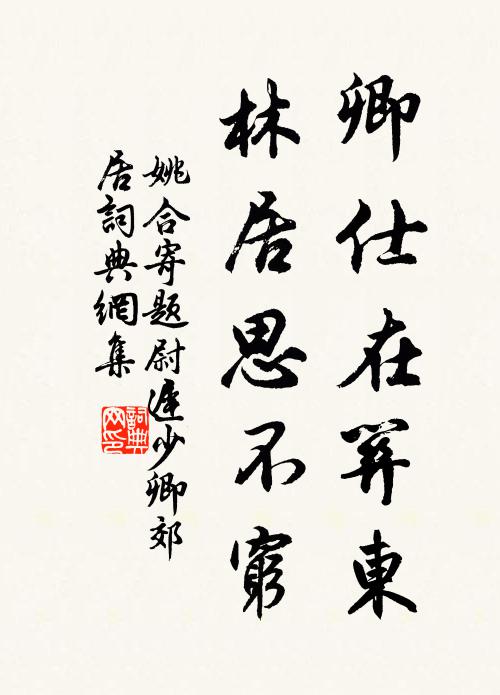 卿仕在關東
林居思不窮
姚合寄題尉遲少卿郊
居詞典網集
詞典
网印